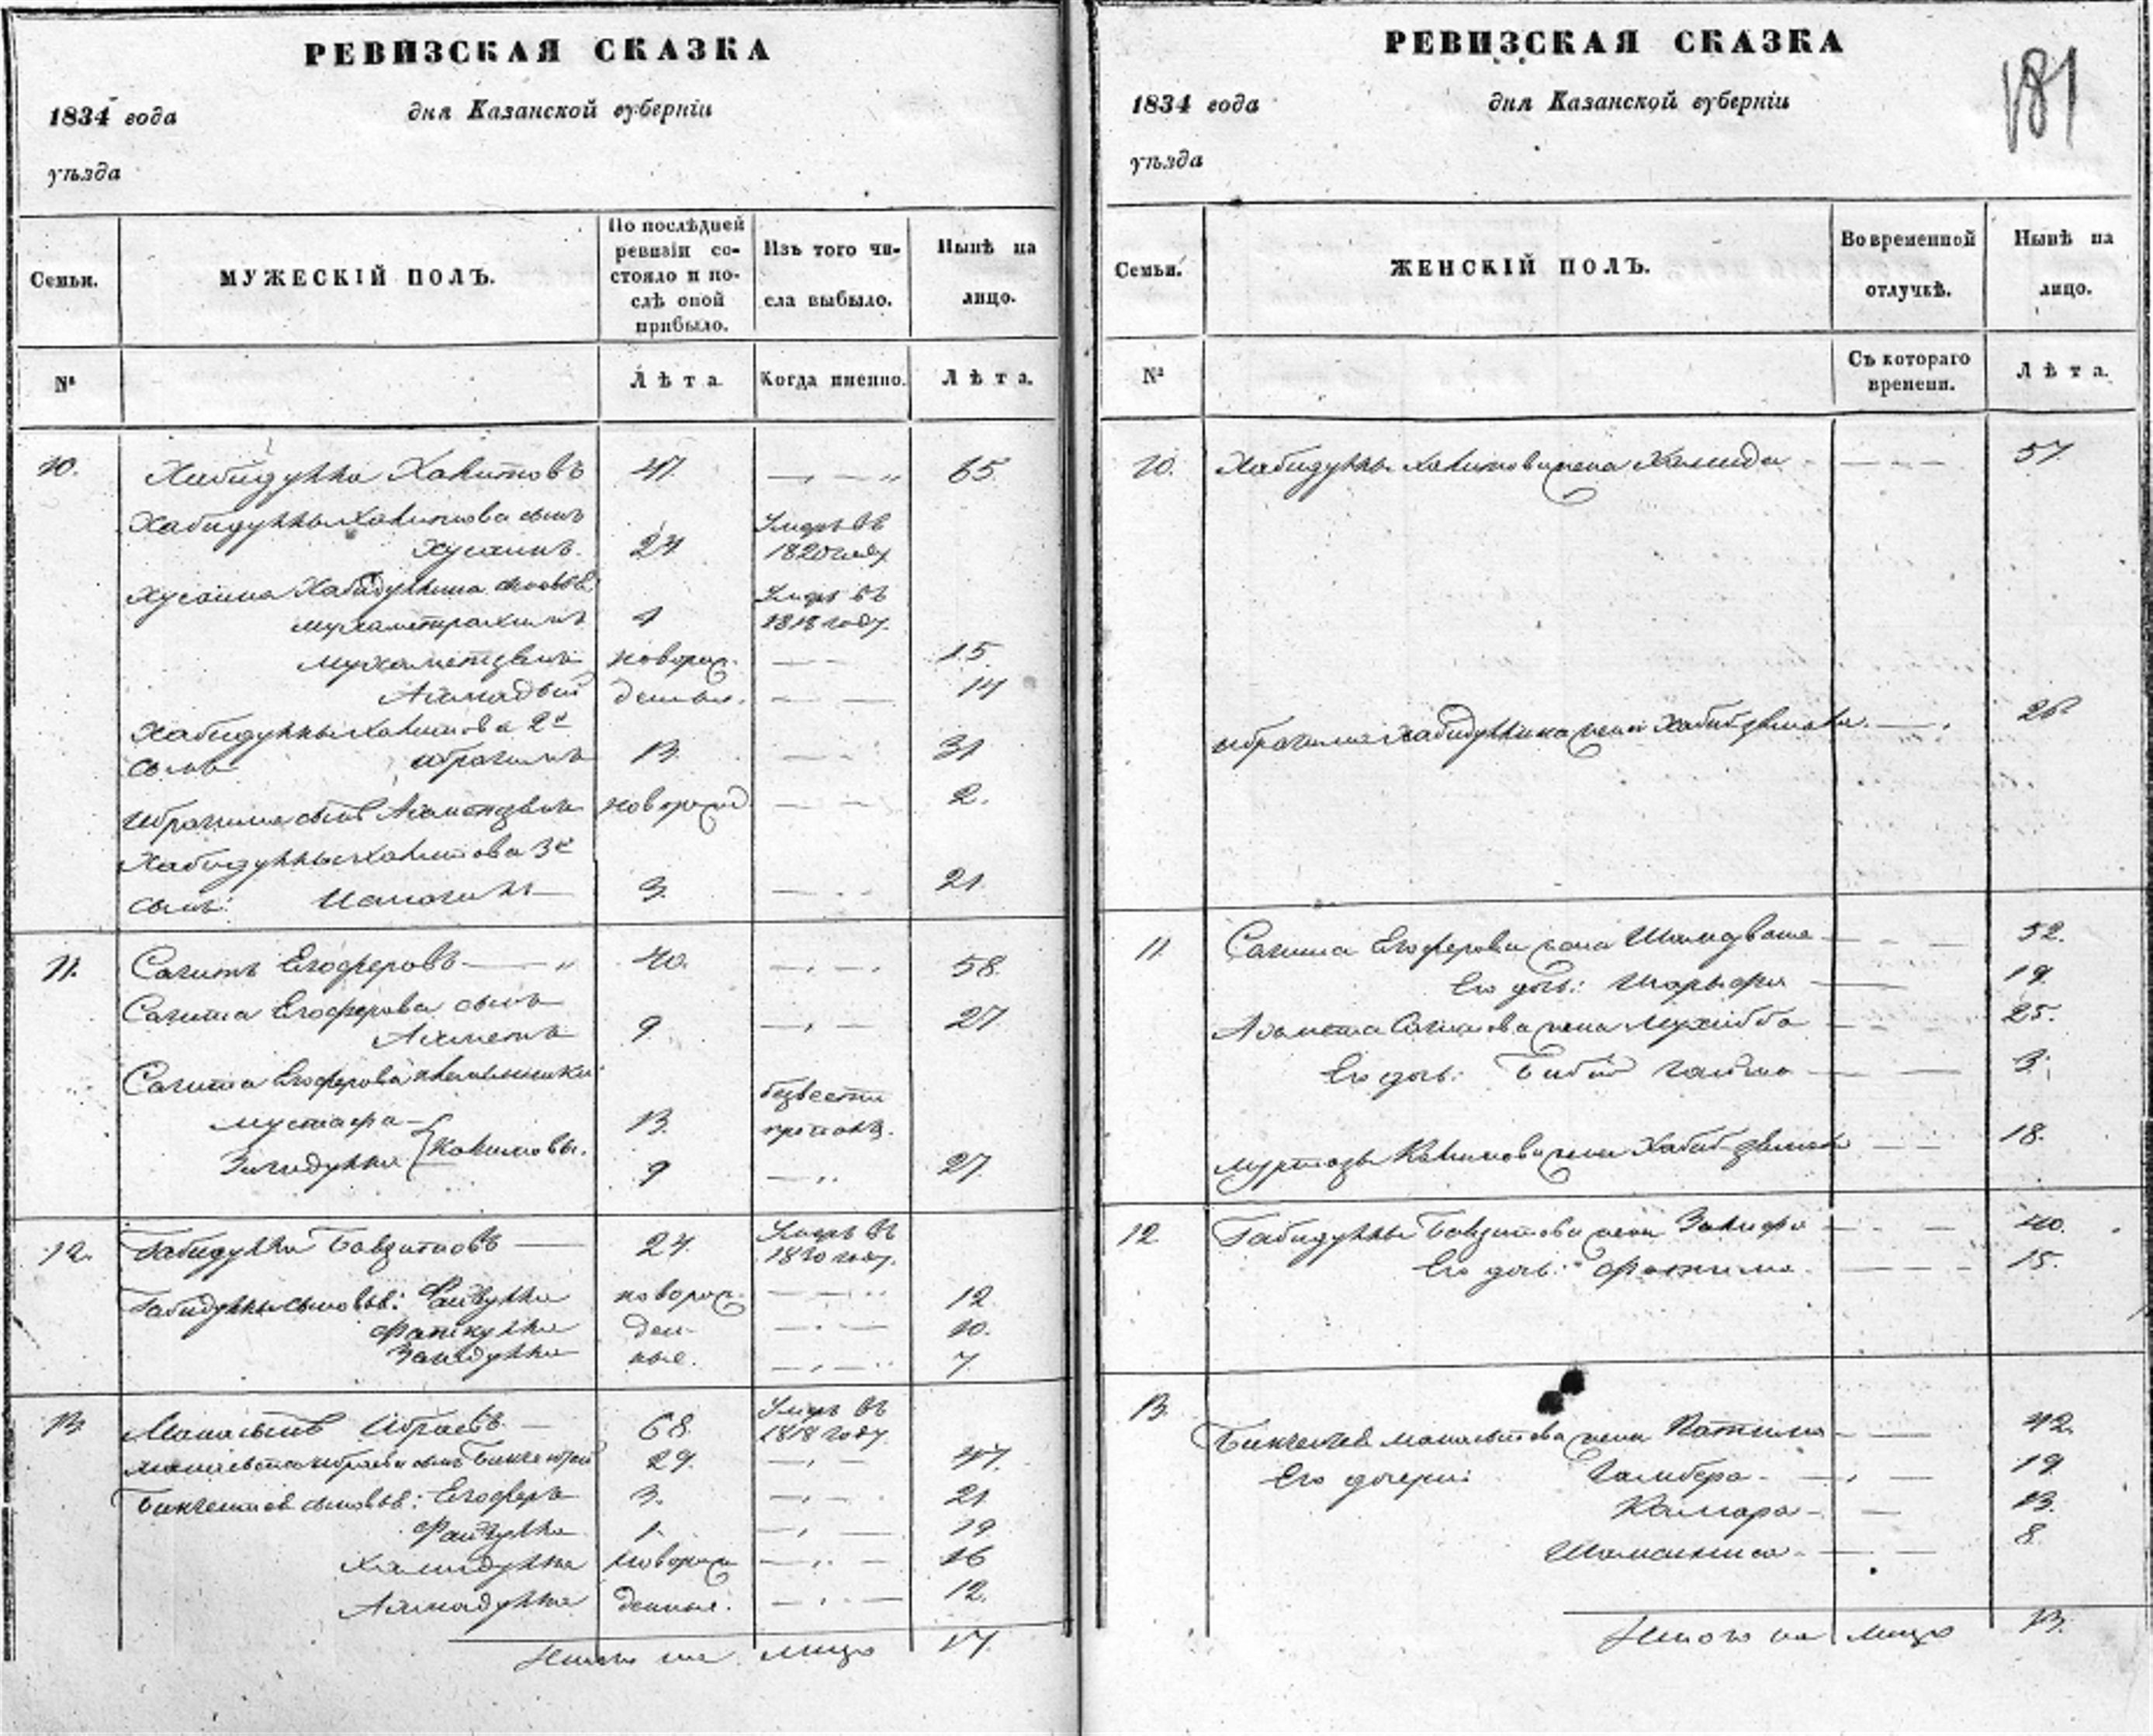 РЕВИЗСКАЯ СКАЗКА
1834 года
дня Казанской губерніи
уѣзда
Семьи.
МУЖЕСКІЙ ПОЛЪ.
По послѣдней ревизіи со-стояло и по-слѣ оной прибыло.
Изъ того чи-сла выбыло.
Нынѣ на лицо.
№
Лѣта.
Когда именно.
Лѣта.
10. Хабидулла Халитовъ 47. 65.
Хабидуллы Халитова сынъ
Хусаинъ. 24. Умеръ въ 1820 году
Хусаина Хабидуллина сыновья
Мухаметрахимъ 4 Умеръ въ 1818 году.
Мухаметзянъ новорож- 15.
Ахмадый денные. 14
Хабидуллы Халитова 2й
сынъ Ибрагимъ 13. 31
Ибрагима сынъ Ахметзянъ новорожд 2.
Хабидуллы Халитова 3й
сынъ: Исмагилъ 3. 21.
11. Сагитъ Ягоферовъ 40. 58.
Сагита Ягоферова сынъ
Ахметъ 9. 27
Сагита Ягоферова племянники:
Мустафа 13. безвести пропалъ.
Халиловы. 9 27.
12. Габидулла Бавзитовъ 24. Умеръ въ 1820 году.
Габидуллы сыновья: Файзулла новорож- 12
Фаткулла ден- 10.
Заидулла ные. 7.
13. Ибраевъ 68. Умеръ въ 1818 году
29. 47.
сыновья: Ягоферъ 3. 21
Файзулла 1. 19
Хамидулла новорож 16
Ахмадулла денные. 12.
Итого на лицо 17.
РЕВИЗСКАЯ СКАЗКА
181
1834 года
дня Казанской губерніи
уѣзда
Семьи.
ЖЕНСКІЙ ПОЛЪ.
Во временной отлучкѣ.
Нынѣ на лицо.
№
Съ котораго времени.
Лѣта.
10. Хабидуллы Халитова жена Халида 57
Ибрагима Хабидуллина жена Хабибзямал 26
11 Сагита Ягоферова жена 52.
Его дочь: Шарифа 19
Ахмета Сагитова жена Мухибба 25.
Его дочь: Биби 3.
Муртазы Халилова жена Хабибзямал 18.
12 Габидуллы Бавзитова жена Залифа 40.
Его дочь: Фатима 15.
13. жена Фатима 42.
Его дочери: Гамбера 19
Камара 13.
Шамсиниса 8
Итого на лицо 13.